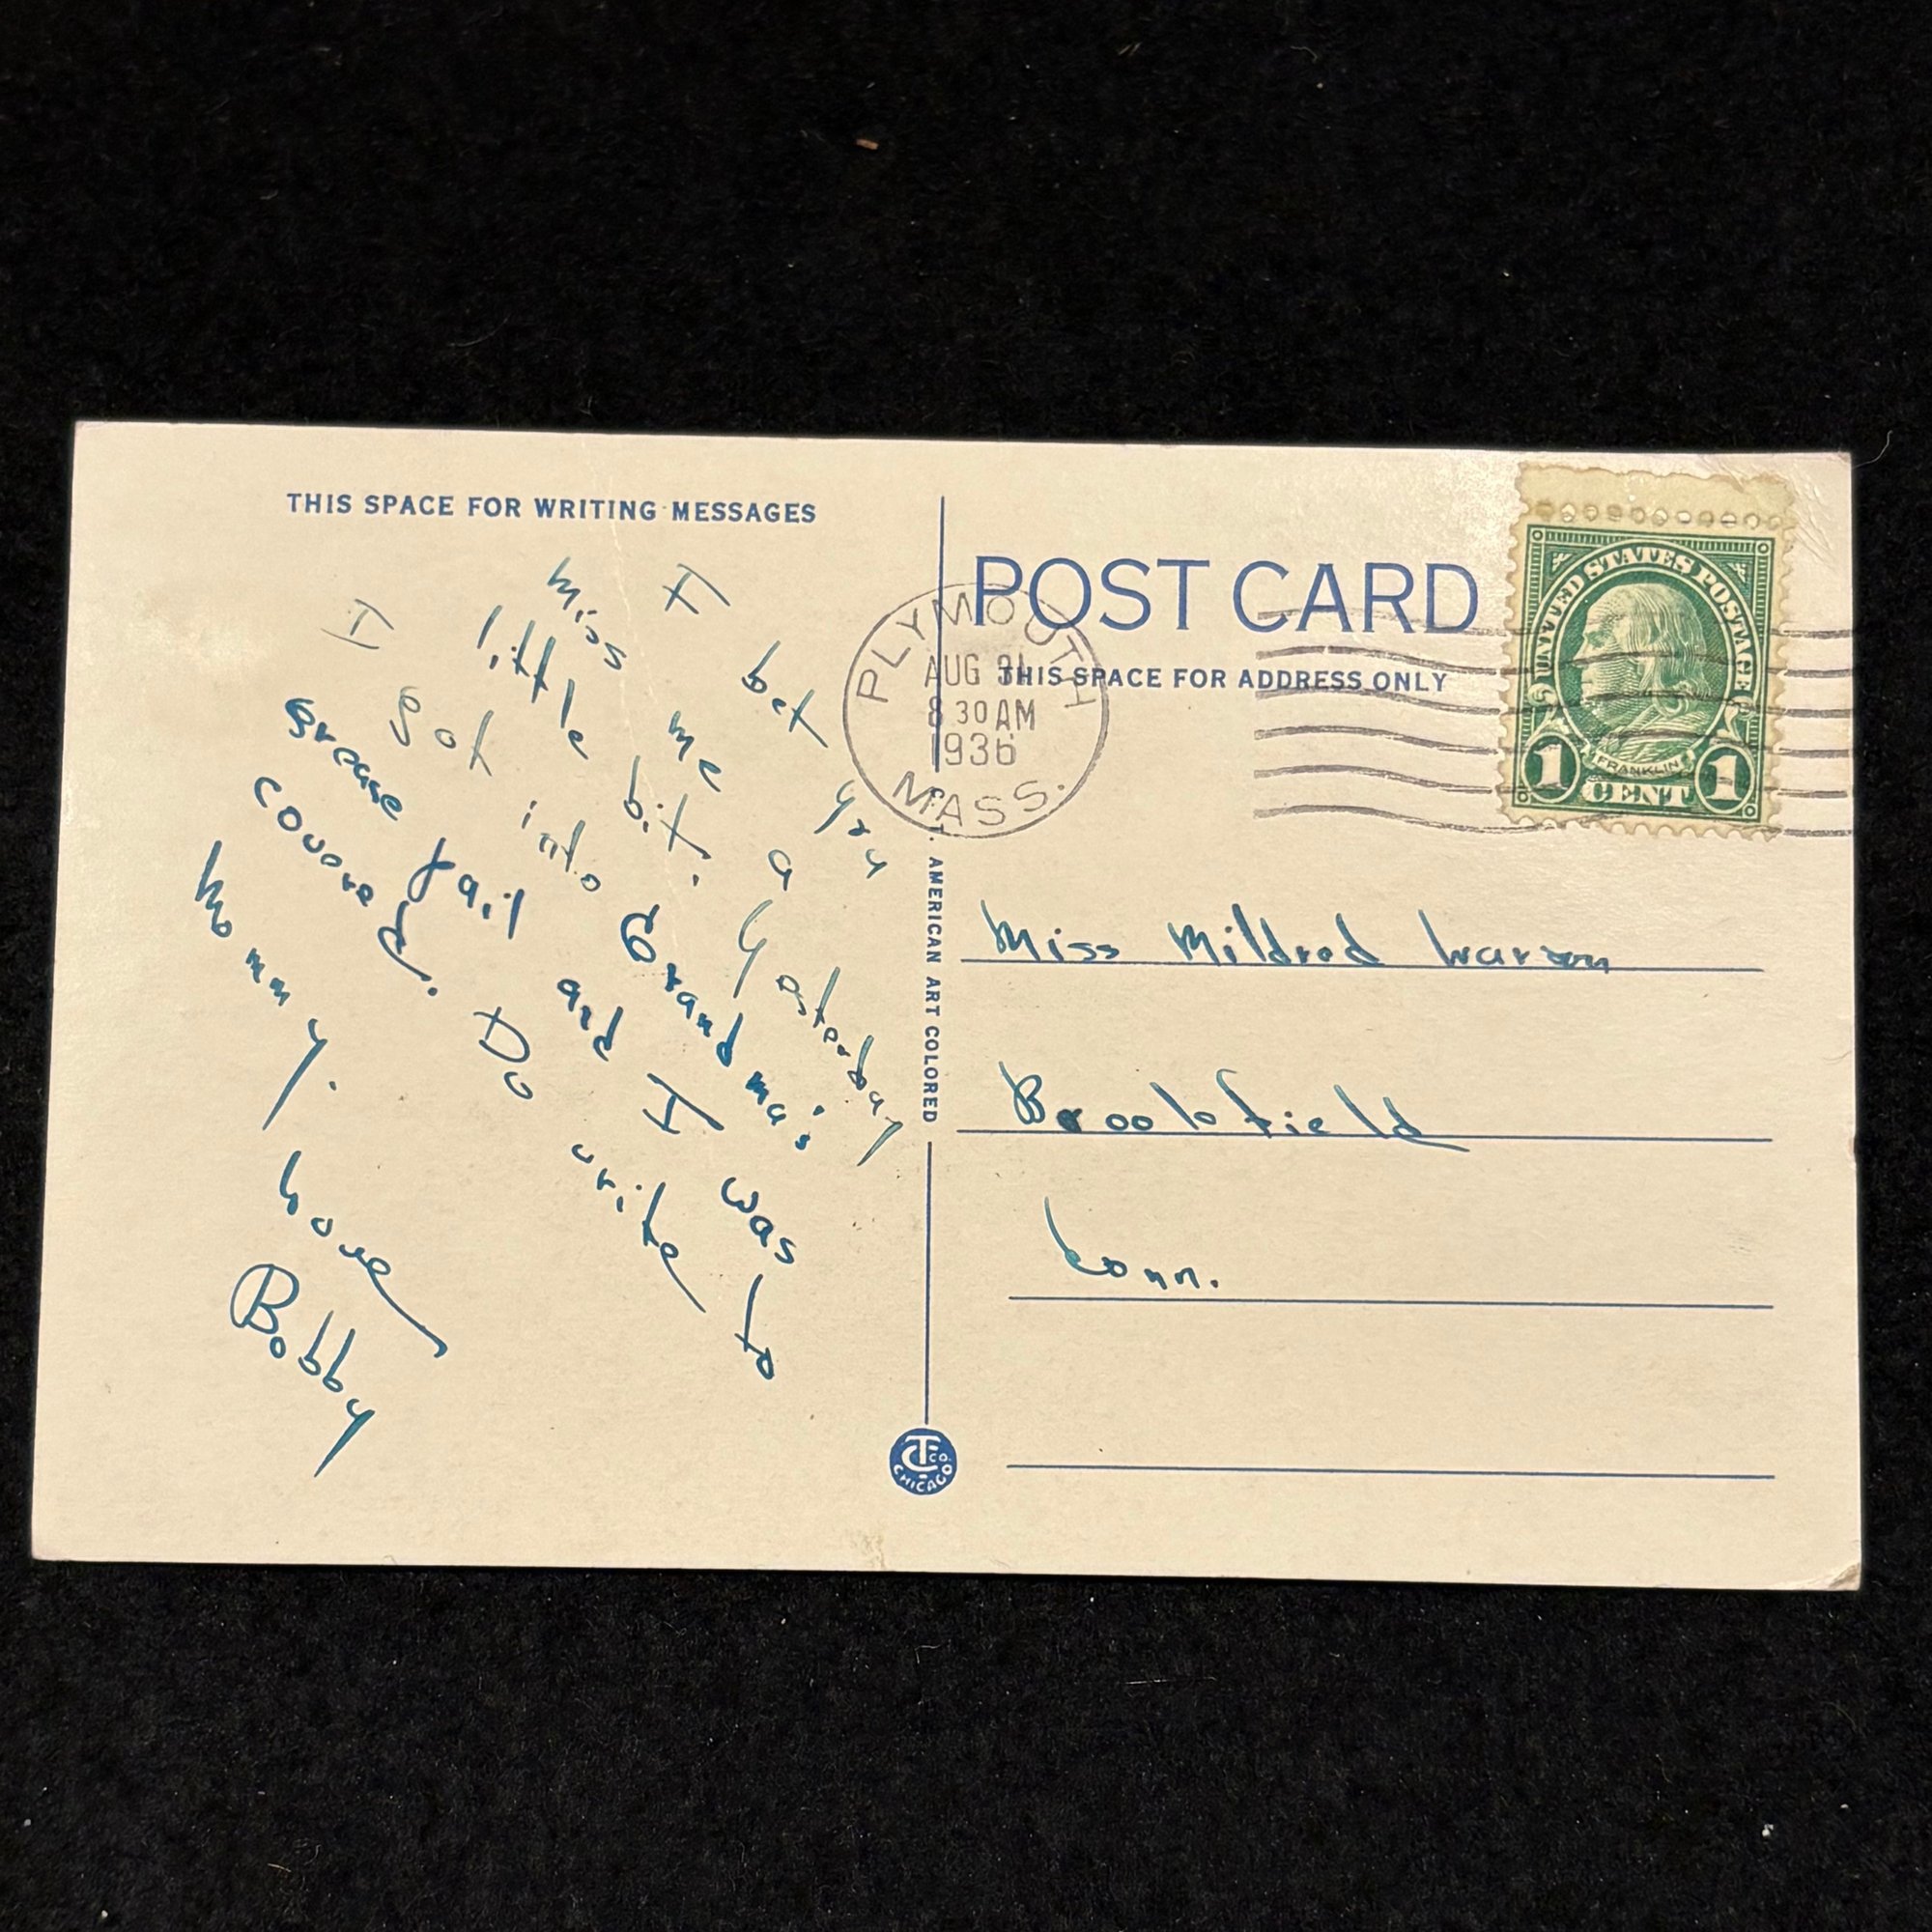 THIS SPACE FOR WRITING MESSAGES
I bet you
miss me a
little bit. Yesterday
I got into Grandma's
grease pail and I was
covered. Do write to
mommy.
Love
Bobby
C.T. AMERICAN ART COLORED
CTCO. CHICAGO
POST CARD
THIS SPACE FOR ADDRESS ONLY
PLYMOUTH
AUG 31
8 30 AM
1936
MASS.
UNITED STATES POSTAGE
FRANKLIN
1 CENT 1
Miss Mildred Warren
Brookfield
Conn.